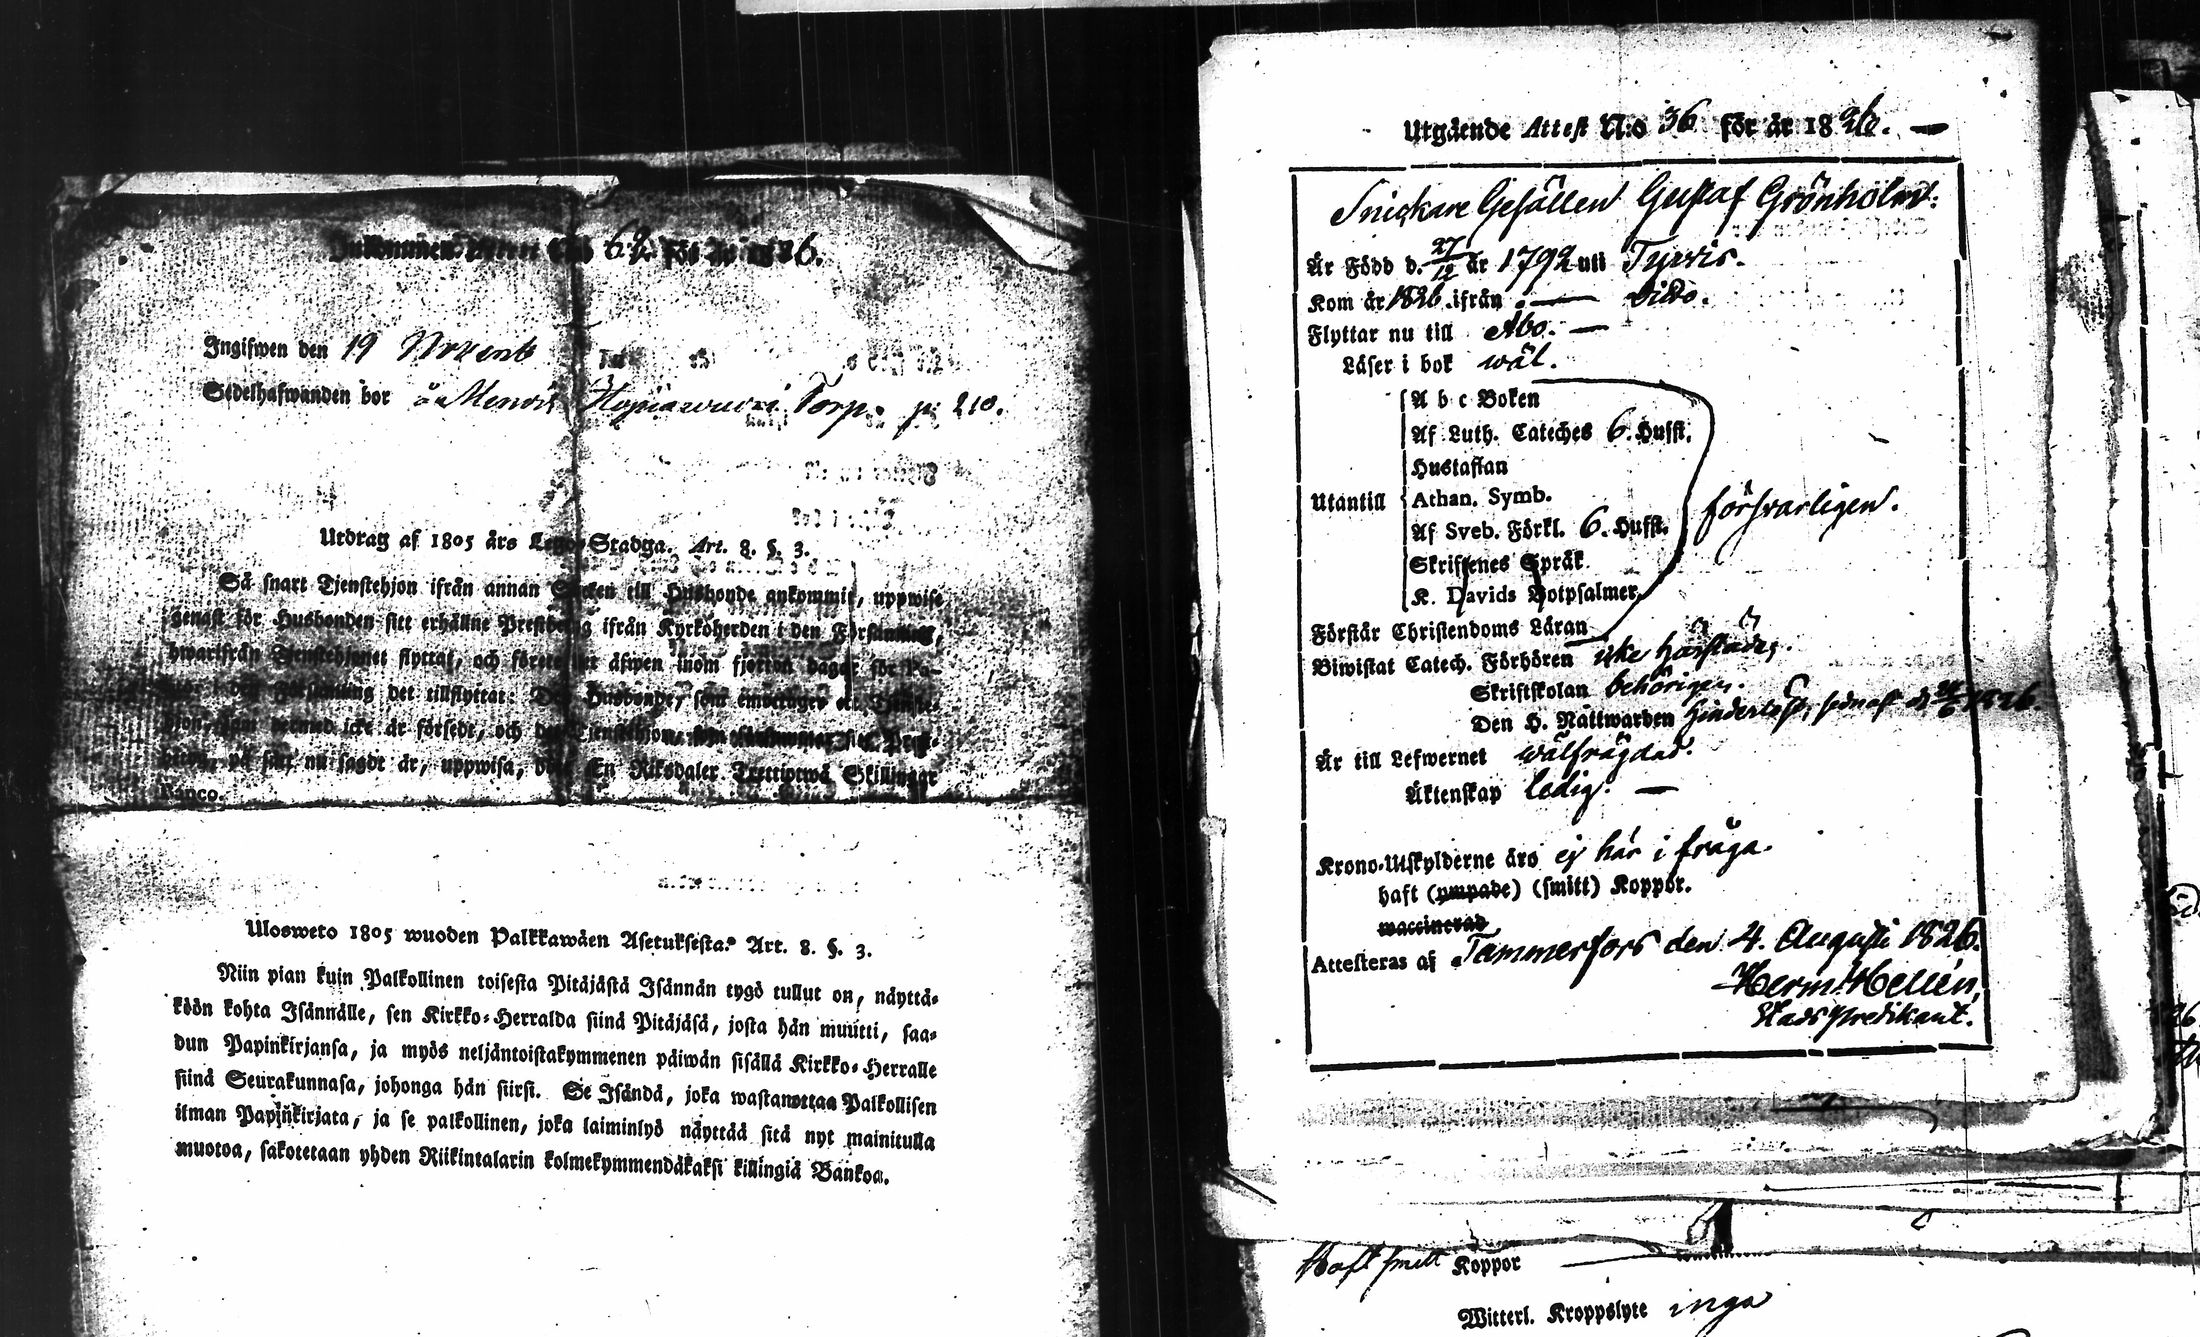 Inkommen Attest N:o 62. för år 1826.
Ingifwen den 19
Sedelhafwanden bor Torp. p: 210.
Utdrag af 1805 års Lego-Stadga. Art. 8. §. 3.
Så snart Tjenstehjon ifrån annan Socken till Husbonde ankommit, uppwise
genast för Husbonden sitt erhållne Prestbetyg ifrån Kyrkoherden i den Församling,
hwarifrån Tjenstehjonet flyttat, och förete det äfwen inom fjorton dagar för Pa-
Församling det tillflyttat: Den Husbonde, som emottager ett Tjenste-
hjon, som dermed icke är försedt, och det Tjenstehjon, som
på sätt nu sagdt är, uppwisa, böte En Riksdaler Trettiotwå Skillingar
Banco.
Ulosweto 1805 wuoden Palkkawäen Asetuksesta. Art. 8. §. 3.
Niin pian kuin Palkollinen toisesta Pitäjästä Isännän tygö tullut on, näyttä-
köön kohta Isännälle, sen Kirkko-Herralda siinä Pitäjäsä, josta hän muutti, saa-
dun Papinkirjansa, ja myös neljäntoistakymmenen päiwän sisällä Kirkko-Herralle
siinä Seurakunnasa, johonga hän siirsi. Se Isändä, joka wastanottaa Palkollisen
ilman Papinkirjata, ja se palkollinen, joka laiminlyö näyttää sitä nyt mainitulla
muotoa, sakotetaan yhden Riikintalarin kolmekymmendäkaksi killingiä Bankoa.
Utgående Attest N:o 36 för år 1826.
Snickare Gesällen Gustaf Grönholm:
Är Född d. 27/12 år 1792 uti Tyrvis.
Kom år 1826 ifrån — dito.
Flyttar nu till Åbo. —
Läser i bok wäl.
A b c Boken
Af Luth. Cateches 6. Hufst.
Hustaflan
Utantill Athan. Symb. försvarligen.
Af Sveb. Förkl. 6. Hufst.
Skriftenes Språk
K. Davids Botpsalmer
Förstår Christendoms Läran
Biwistat Catech. Förhören icke härstädes.
Skriftskolan behörigen.
Den H. Nattwarden hinderlöst, sednast d. 1826.
Är till Lefwernet wälfrägdad.
Äktenskap ledig. —
Krono-Utskylderne äro ej här i fråga.
haft (ympade) (smitt) Koppor.
waccinerad
Attesteras af Tammerfors den 4. Augusti 1826.
Herm. Hellén,
Stads predikant.
Haft smitt Koppor
Witterl. Kroppslyte inga